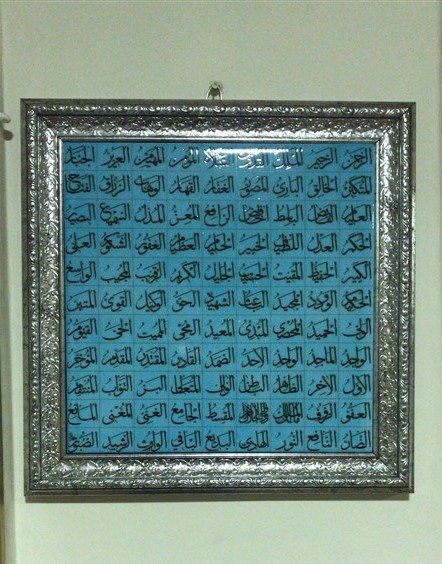 الرحمن الرحيم الملك القدوس السلام المؤمن المهيمن العزيز الجبار
المتكبر الخالق البارئ المصور الغفار القهار الوهاب الرزاق الفتاح
العليم القابض الباسط الخافض الرافع المعز المذل السميع البصير
الحكم العدل اللطيف الخبير الحليم العظيم الغفور الشكور العلي
الكبير الحفيظ المقيت الحسيب الجليل الكريم الرقيب المجيب الواسع
الحكيم الودود المجيد الباعث الشهيد الحق الوكيل القوي المتين
الولي الحميد المحصي المبدئ المعيد المحيي المميت الحي القيوم
الواجد الماجد الواحد الاحد الصمد القادر المقتدر المقدم المؤخر
الاول الاخر الظاهر الباطن الوالي المتعالي البر التواب المنتقم
العفو الرؤف مالك الملك ذوالجلال والاكرام المقسط الجامع الغني المغني المانع
الضار النافع النور الهادي البديع الباقي الوارث الرشيد الصبور